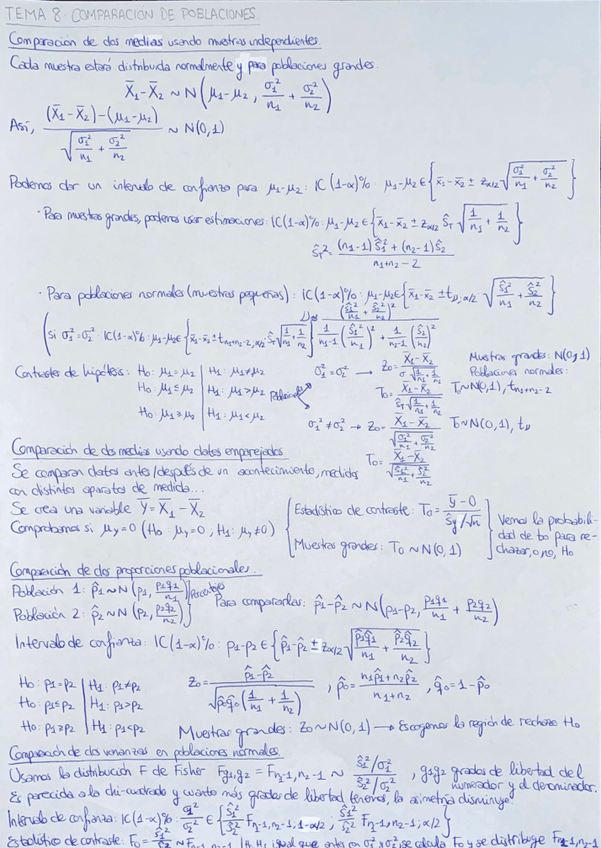 TEMA 8: COMPARACIÓN DE POBLACIONES
Comparación de dos medias usando muestras independientes
Cada muestra estará distribuida normalmente y para poblaciones grandes
X̄₁-X̄₂ ~ N(μ₁-μ₂, σ₁²/n₁ + σ₂²/n₂)
Así, ((X̄₁-X̄₂)-(μ₁-μ₂)) / √(σ₁²/n₁ + σ₂²/n₂) ~ N(0,1)
Podemos dar un intervalo de confianza para μ₁-μ₂: IC(1-α)%: μ₁-μ₂ ∈ {x̄₁-x̄₂ ± z_α/2 √(σ₁²/n₁ + σ₂²/n₂)}
· Para muestras grandes, podemos usar estimaciones: IC(1-α)%: μ₁-μ₂ ∈ {x̄₁-x̄₂ ± z_α/2 Ŝ_T √(1/n₁ + 1/n₂)}
Ŝ_T² = ((n₁-1)Ŝ₁² + (n₂-1)Ŝ₂) / (n₁+n₂-2)
· Para poblaciones normales (muestras pequeñas): IC(1-α)%: μ₁-μ₂ ∈ {x̄₁-x̄₂ ± t_ν,α/2 · √(Ŝ₁²/n₁ + Ŝ₂²/n₂)}
(Si σ₁²=σ₂²: IC(1-α)%: μ₁-μ₂ ∈ {x̄₁-x̄₂ ± t_n₁+n₂-2,α/2 Ŝ_T √(1/n₁ + 1/n₂)} ν = (Ŝ₁²/n₁ + Ŝ₂²/n₂)² / (1/(n₁-1) (Ŝ₁²/n₁)² + 1/(n₂-1) (Ŝ₂²/n₂)²)
Contrastes de hipótesis: H₀: μ₁=μ₂ | H₁: μ₁≠μ₂
H₀: μ₁≤μ₂ | H₁: μ₁>μ₂
H₀: μ₁≥μ₂ | H₁: μ₁<μ₂
σ₁²=σ₂² → Z₀ = (X̄₁-X̄₂) / (σ √(1/n₁ + 1/n₂))
T₀ = (X̄₁-X̄₂) / (Ŝ_T √(1/n₁ + 1/n₂))
Muestras grandes: N(0,1)
Poblaciones normales:
T₀~N(0,1), t_n₁+n₂-2
σ₁²≠σ₂² → Z₀ = (X̄₁-X̄₂) / √(σ₁²/n₁ + σ₂²/n₂) T₀~N(0,1), t_ν
T₀ = (X̄₁-X̄₂) / √(Ŝ₁²/n₁ + Ŝ₂²/n₂)
Comparación de dos medias usando datos emparejados
Se comparan datos antes/después de un acontecimiento, medidos
con distintos aparatos de medida...
Se crea una variable Ȳ = X̄₁ - X̄₂
Comprobamos si μ_y=0 (H₀: μ_y=0, H₁: μ_y≠0)
Estadístico de contraste: T₀ = (ȳ-0) / (Ŝ_y/√n)
Muestras grandes: T₀ ~ N(0,1)
Vemos la probabili-
dad de t₀ para re-
chazar, o no, H₀
Comparación de dos proporciones poblacionales
Población 1: p̂₁ ~ N(p₁, p₁q₁/n₁)
Población 2: p̂₂ ~ N(p₂, p₂q₂/n₂)
Para compararlas: p̂₁-p̂₂ ~ N(p₁-p₂, p₁q₁/n₁ + p₂q₂/n₂)
Intervalo de confianza: IC(1-α)%: p₁-p₂ ∈ {p̂₁-p̂₂ ± z_α/2 √(p̂₁q̂₁/n₁ + p̂₂q̂₂/n₂)}
H₀: p₁=p₂ | H₁: p₁≠p₂
H₀: p₁≤p₂ | H₁: p₁>p₂
H₀: p₁≥p₂ | H₁: p₁<p₂
Z₀ = (p̂₁-p̂₂) / √(p̂₀q̂₀(1/n₁ + 1/n₂)), p̂₀ = (n₁p̂₁+n₂p̂₂) / (n₁+n₂), q̂₀ = 1-p̂₀
Muestras grandes: Z₀~N(0,1) → Escogemos la región de rechazo H₀
Comparación de dos varianzas en poblaciones normales
Usamos la distribución F de Fisher F_g₁,g₂ = F_n₁-1,n₂-1 ~ (Ŝ₁²/σ₁²) / (Ŝ₂²/σ₂²), g₁g₂ grados de libertad del
numerador y el denominador.
Es parecida a la chi-cuadrado y cuanto más grados de libertad tenemos, la asimetría disminuye
Intervalo de confianza: IC(1-α)%: σ₁²/σ₂² ∈ {Ŝ₁²/Ŝ₂² F_n₂-1,n₁-1,1-α/2 ; Ŝ₁²/Ŝ₂² F_n₂-1,n₁-1;α/2}
Estadístico de contraste: F₀ = Ŝ₁²/Ŝ₂² ~ F_n₁-1,n₂-1 | H₀, H₁ igual que antes con σ₁², σ₂², se calcula F₀ y se distribuye F_n₁-1,n₂-1